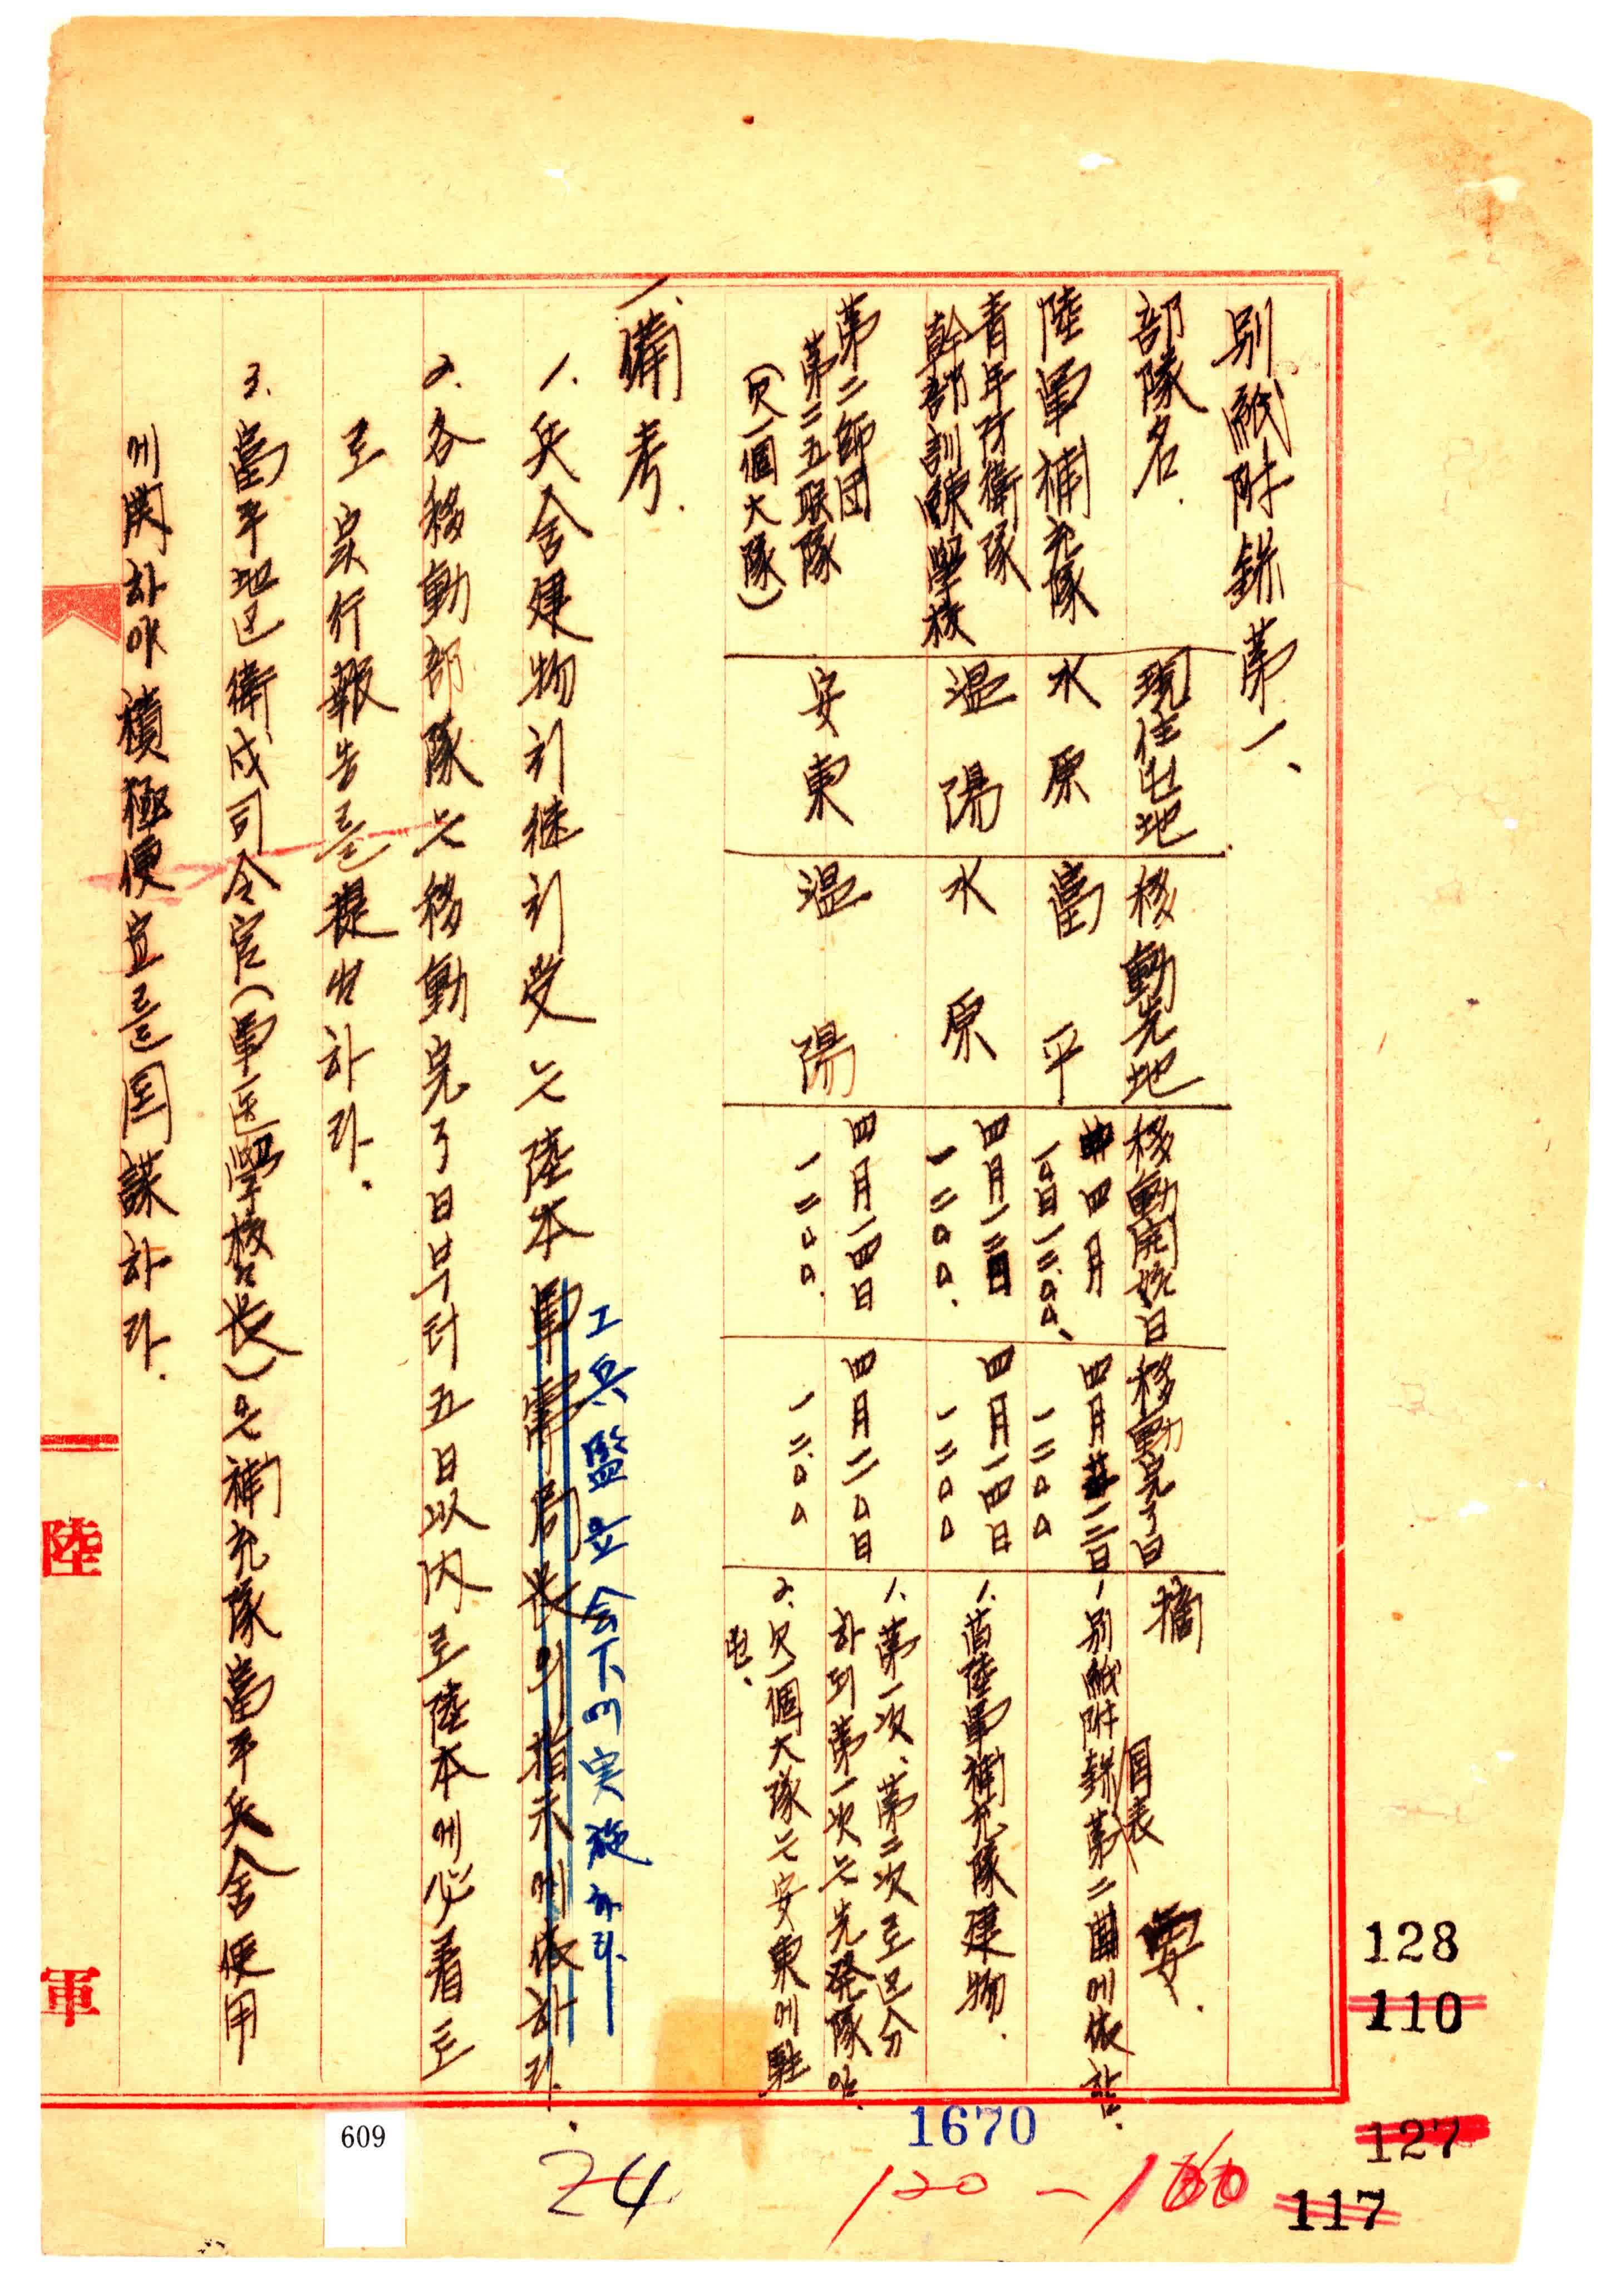 別紙附錄第一、
部隊名. 現住屯地 移動先地 移動開始日 移動完了日 摘 要.
目表
陸軍補充隊 水原 富平 四月一〇日一二〇〇、 四月一二日一二〇〇 1 別紙附錄第二에依함.
青年防衛隊
幹部訓練學校 温陽 水原 四月一二日一二〇〇. 四月一四日一二〇〇 1. 旧陸軍補充隊建物.
第二師団
第二五聯隊
(欠一個大隊) 安東 温陽 四月一四日一二〇〇. 四月二〇日一二〇〇
1. 第一次、第二次로区分
하되第一次는先発隊임.
2. 欠一個大隊는安東에駐
屯.
一、備考.
1. 兵舍建物引継引受는陸本軍需局長의指示에依하라.
工兵監立会下에実施하라.
2. 各移動部隊는移動完了日부터五日以内로陸本에必着토
로実行報告를提出하라.
3. 富平地区衛戍司令官(軍医學校長)은補充隊富平兵舍使用
에関하야積極便宜를図謀하라.
陸
軍
128
110
127
117
1670
120-100
24
609